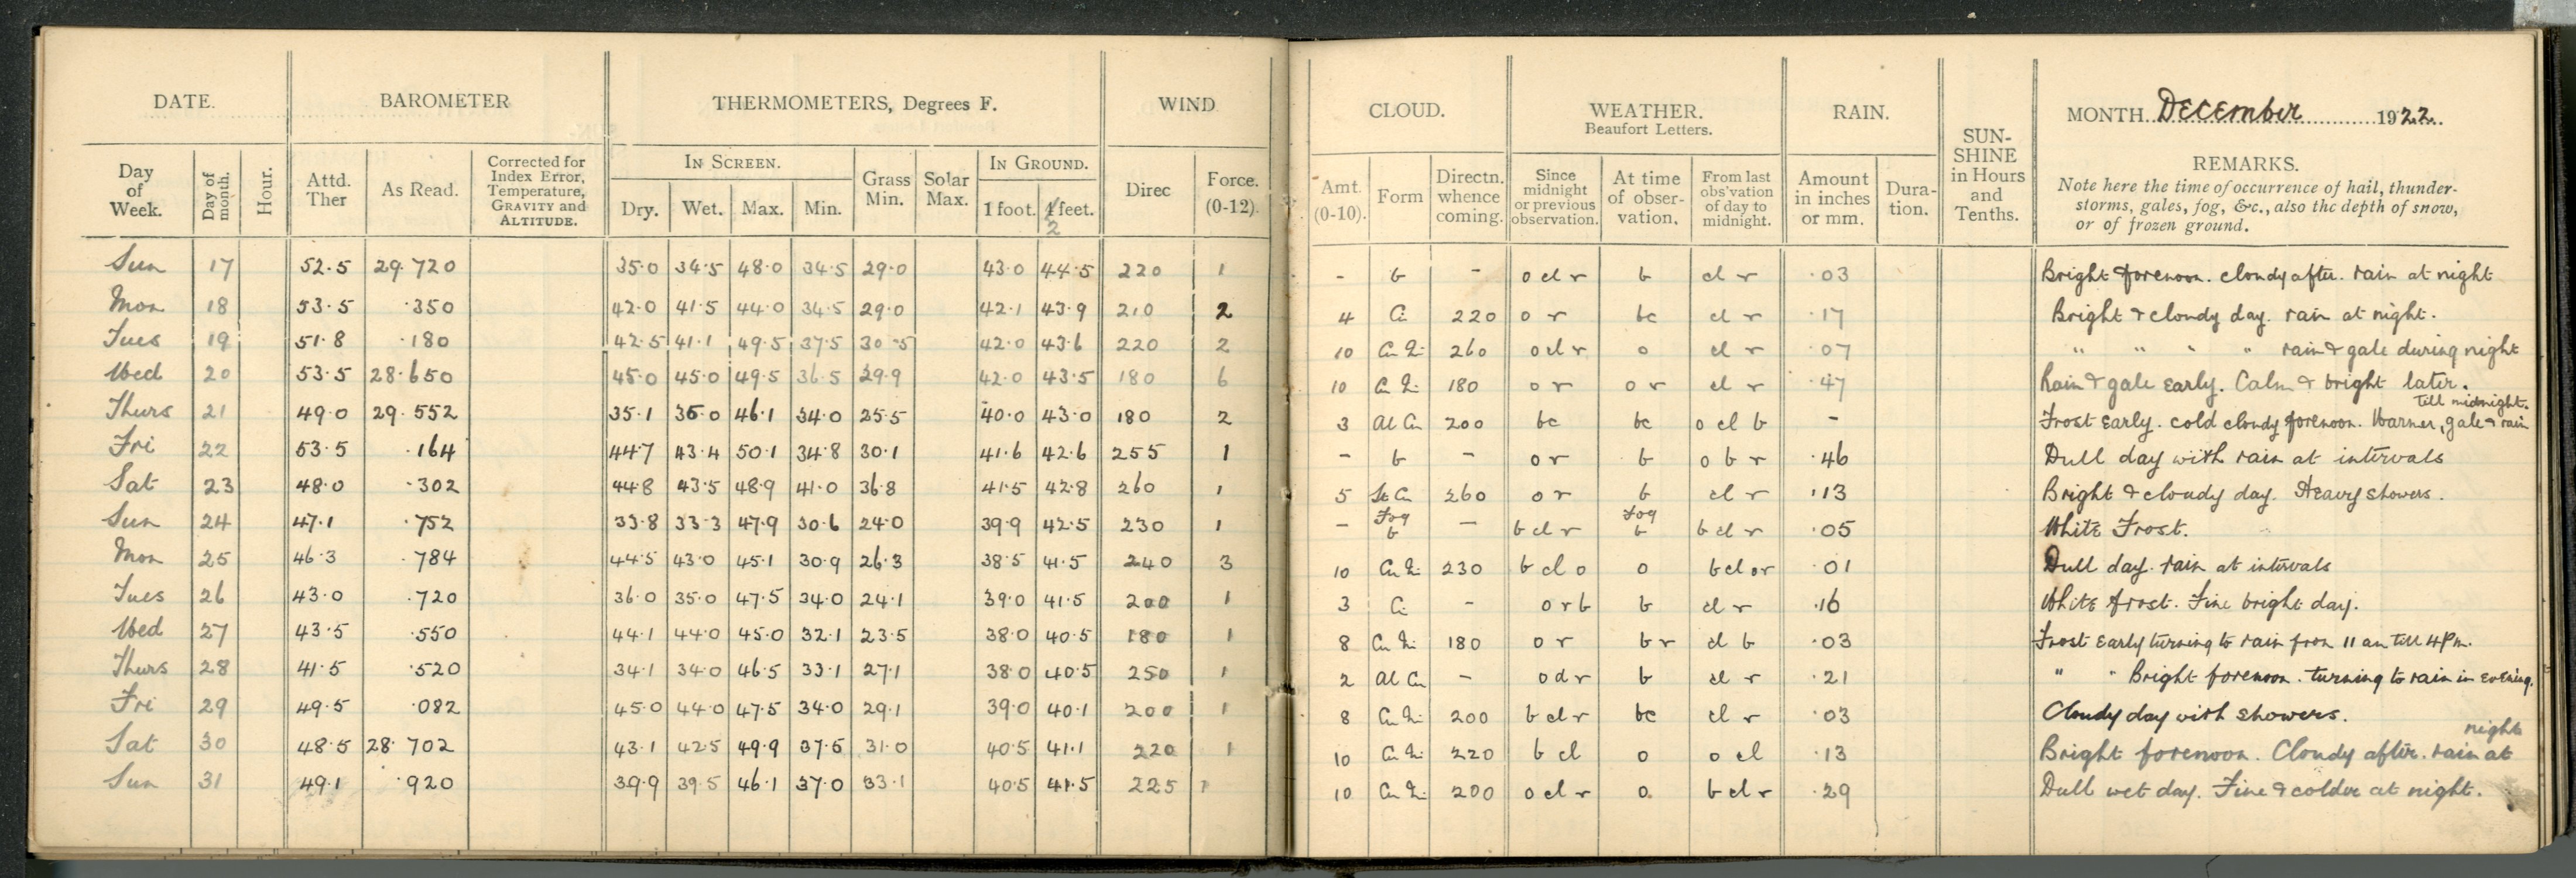 DATE. BAROMETER THERMOMETERS, Degrees F. WIND CLOUD. WEATHER. Beaufort Letters. RAIN. SUN-SHINE in Hours and Tenths. MONTH December 1922
Day of Week. Day of month. Hour. Attd. Ther As Read. Corrected for Index Error, Temperature, GRAVITY and ALTITUDE. IN SCREEN. Dry. Wet. Max. Min. Grass Min. Solar Max. IN GROUND. 1 foot. 4 feet. 2 Direc Force. (0-12). Amt. (0-10). Form Directn. whence coming. Since midnight or previous observation. At time of obser-vation. From last obs'vation of day to midnight. Amount in inches or mm. Dura-tion. REMARKS.
Note here the time of occurrence of hail, thunder-
storms, gales, fog, &c., also the depth of snow,
or of frozen ground.
Sun 17 52.5 29.720 35.0 34.5 48.0 34.5 29.0 43.0 44.5 220 1 - b - o cl r b cl r .03 Bright forenoon. cloudy after. rain at night
Mon 18 53.5 .350 42.0 41.5 44.0 34.5 29.0 42.1 43.9 210 2 4 Ci 220 o r bc cl r .17 Bright & cloudy day. rain at night.
Tues 19 51.8 .180 42.5 41.1 49.5 37.5 30.5 42.0 43.6 220 2 10 Cu Ni 260 o cl r o cl r .07 " " " " rain & gale during night
Wed 20 53.5 28.650 45.0 45.0 49.5 36.5 29.9 42.0 43.5 180 6 10 Cu Ni 180 o r o r cl r .47 Rain & gale early. Calm & bright later.
Thurs 21 49.0 29.552 35.1 35.0 46.1 34.0 25.5 40.0 43.0 180 2 3 Al Cu 200 bc bc o cl b - Frost early. cold cloudy forenoon. Warmer, gale & rain till midnight.
Fri 22 53.5 .164 44.7 43.4 50.1 34.8 30.1 41.6 42.6 255 1 - b - o r b o b r .46 Dull day with rain at intervals
Sat 23 48.0 .302 44.8 43.5 48.9 41.0 36.8 41.5 42.8 260 1 5 St Cu 260 o r b cl r .13 Bright & cloudy day. Heavy showers.
Sun 24 47.1 .752 33.8 33.3 47.9 30.6 24.0 39.9 42.5 230 1 - Fog b - b cl r Fog b b cl r .05 White Frost.
Mon 25 46.3 .784 44.5 43.0 45.1 30.9 26.3 38.5 41.5 240 3 10 Cu Ni 230 b cl o o b cl or .01 Dull day. rain at intervals
Tues 26 43.0 .720 36.0 35.0 47.5 34.0 24.1 39.0 41.5 200 1 3 Ci - o r b b cl r .16 White frost. Fine bright day.
Wed 27 43.5 .550 44.1 44.0 45.0 32.1 23.5 38.0 40.5 180 1 8 Cu Ni 180 o r b r cl b .03 Frost early turning to rain from 11 am till 4 Pm.
Thurs 28 41.5 .520 34.1 34.0 46.5 33.1 27.1 38.0 40.5 250 1 2 Al Cu - o d r b cl r .21 " " Bright forenoon. turning to rain in evening.
Fri 29 49.5 .082 45.0 44.0 47.5 34.0 29.1 39.0 40.1 200 1 8 Cu Ni 200 b cl r bc cl r .03 Cloudy day with showers.
Sat 30 48.5 28.702 43.1 42.5 49.9 37.5 31.0 40.5 41.1 220 1 10 Cu Ni 220 b cl o o cl .13 Bright forenoon. Cloudy after. rain at night
Sun 31 49.1 .920 39.9 39.5 46.1 37.0 33.1 40.5 41.5 225 1 10 Cu Ni 200 o cl r o. b cl r .29 Dull wet day. Fine & colder at night.